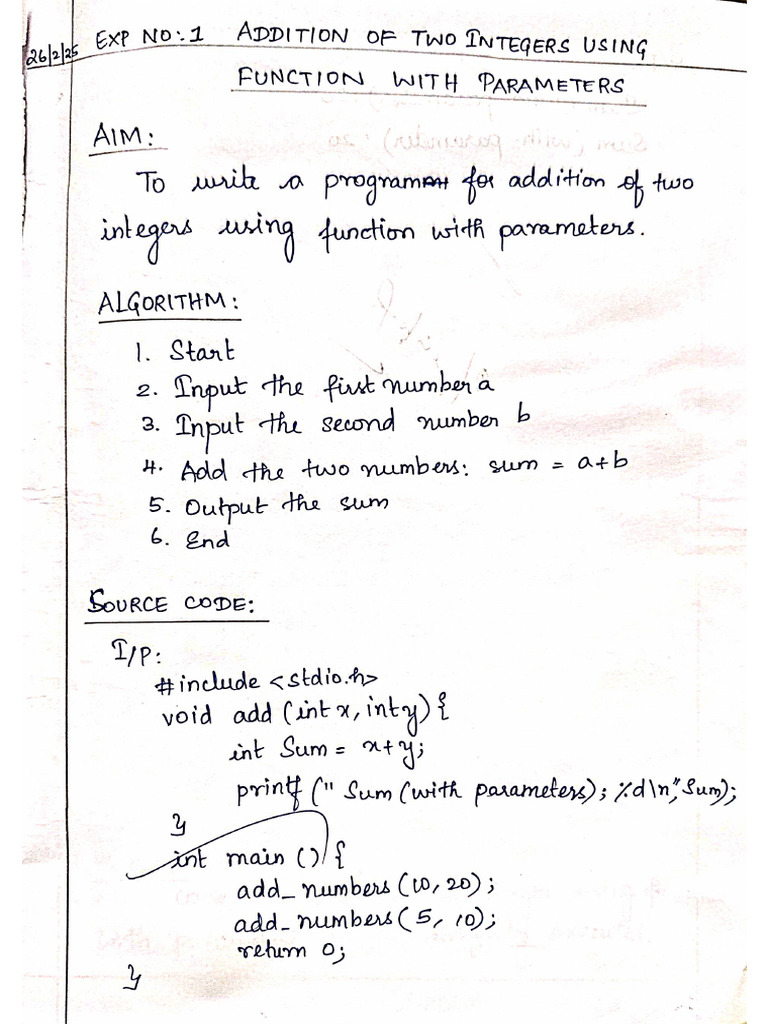 26/2/25 EXP NO:-1 ADDITION OF TWO INTEGERS USING
FUNCTION WITH PARAMETERS
AIM:
To write a program for addition of two
integers using function with parameters.
ALGORITHM:
1. Start
2. Input the first number a
3. Input the second number b
4. Add the two numbers: sum = a+b
5. Output the sum
6. End
SOURCE CODE:
I/P:
#include <stdio.h>
void add (int x, int y) {
int Sum = x+y;
printf (" Sum (with parameters); %d\n", Sum);
}
int main () {
add_numbers (10, 20);
add_numbers (5, 10);
return 0;
}